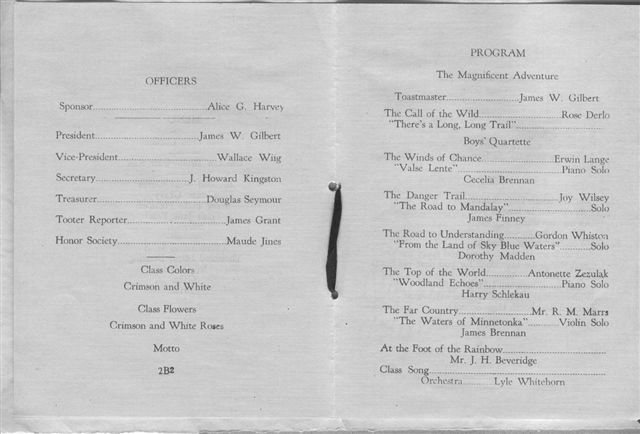 OFFICERS
Sponsor....................Alice G. Harvey
President....................James W. Gilbert
Vice-President....................Wallace Wiig
Secretary....................J. Howard Kingston
Treasurer....................Douglas Seymour
Tooter Reporter....................James Grant
Honor Society....................Maude Jines
Class Colors
Crimson and White
Class Flowers
Crimson and White Roses
Motto
2B2
PROGRAM
The Magnificent Adventure
Toastmaster....................James W. Gilbert
The Call of the Wild....................Rose Derlo
"There's a Long, Long Trail"....................
Boys' Quartette
The Winds of Chance....................Erwin Lange
"Valse Lente"....................Piano Solo
Cecelia Brennan
The Danger Trail....................Joy Wilsey
"The Road to Mandalay"....................Solo
James Finney
The Road to Understanding............Gordon Whiston
"From the Land of Sky Blue Waters"........Solo
Dorothy Madden
The Top of the World............Antonette Zezulak
"Woodland Echoes"....................Piano Solo
Harry Schlekau
The Far Country....................Mr. R. M. Marrs
"The Waters of Minnetonka"........Violin Solo
James Brennan
At the Foot of the Rainbow....................
Mr. J. H. Beveridge
Class Song....................
Orchestra..........Lyle Whitehorn